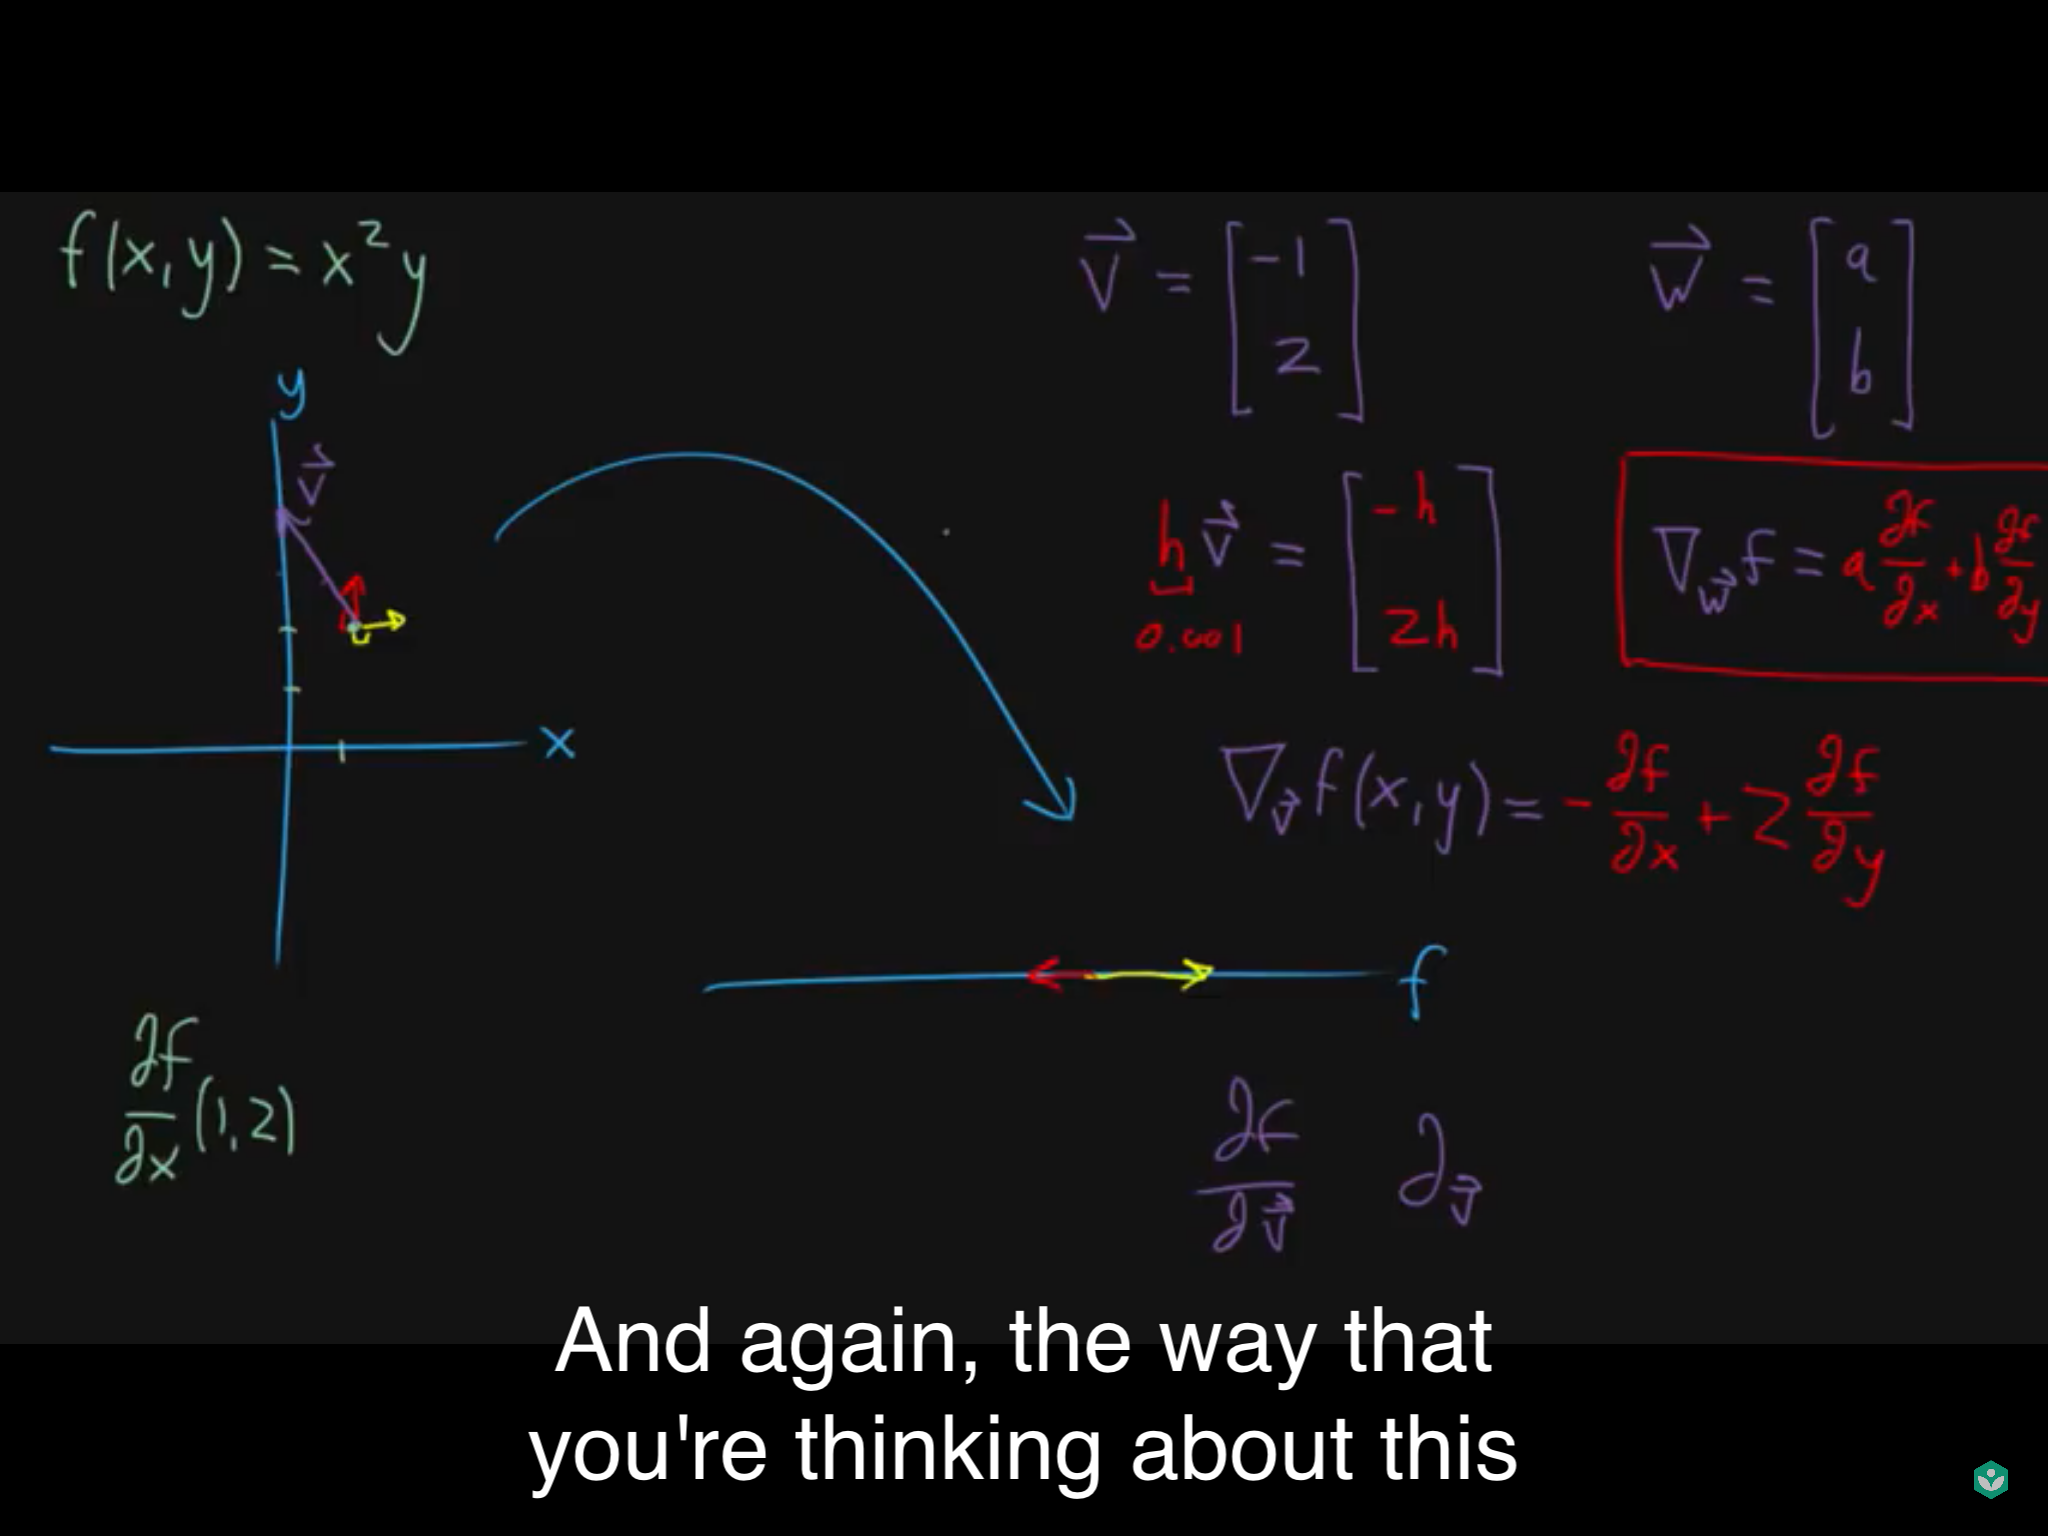 f(x,y) = x²y
v⃗ = [-1 2]
w⃗ = [a b]
y
v⃗
hv⃗ = [-h 2h]
0.001
∇_w⃗ f = a ∂f/∂x + b ∂f/∂y
x
∇_v⃗ f(x,y) = - ∂f/∂x + 2 ∂f/∂y
f
∂f/∂x (1,2)
∂f/∂v⃗ ∂_v⃗
And again, the way that
you're thinking about this